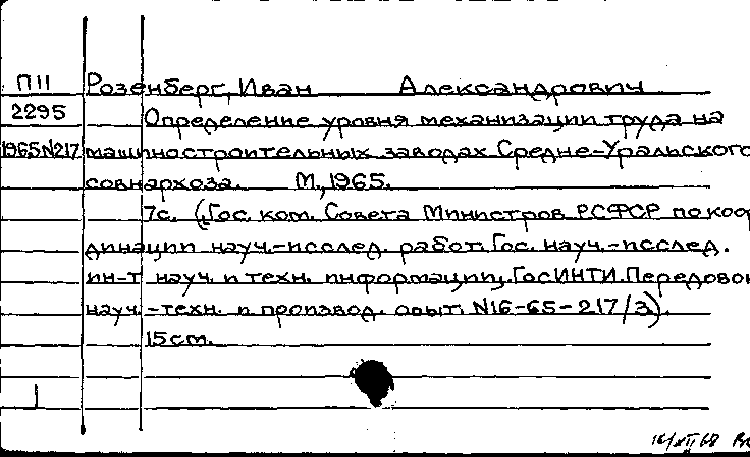 П11 Розенберг, Иван Александрович
2295 Определение уровня механизации труда на
1965N217 машиностроительных заводах Средне-Уральского
совнархоза. М., 1965.
7с. (Гос. ком. Совета Министров РСФСР по коор
динации науч.-исслед. работ. Гос. науч.-исслед.
ин-т науч. и техн. информации. ГосИНТИ. Передовой
науч.-техн. и производ. опыт. N16-65-217/3).
15см.